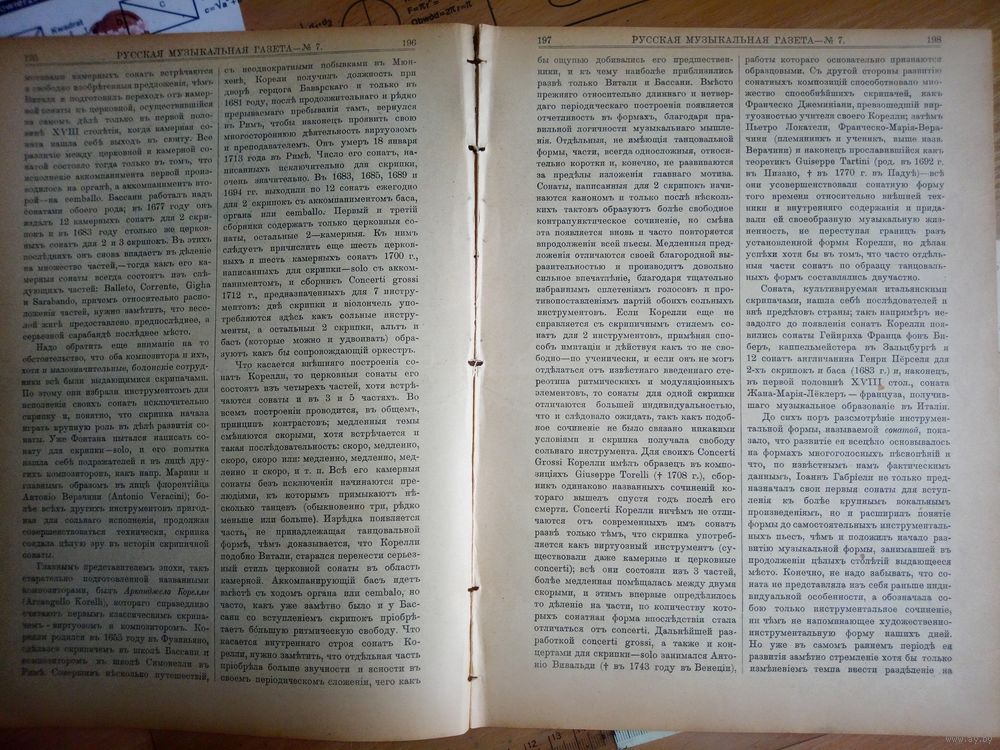 195 РУССКАЯ МУЗЫКАЛЬНАЯ ГАЗЕТА—№ 7. 196
мотивами камерныхъ сонатъ встрѣчаются
а свободно изобрѣтенныя предложенія, чѣмъ
Витали и подготовилъ переходъ отъ камер-
ной сонаты къ церковной, осуществившійся
на самомъ дѣлѣ только въ первой поло-
винѣ XVIII столѣтія, когда камерная со-
ната нашла себѣ выходъ въ сюиту. Все
различіе между церковной и камерной со-
натой состояло тогда только въ томъ, что
исполненіе аккомпанимента первой произ-
водилось на органѣ, а аккомпаниментъ вто-
рой—на cembalo. Бассани работалъ надъ
сонатами обоего рода; въ 1677 году онъ
издалъ 12 камерныхъ сонатъ для 2 скри-
покъ и въ 1683 году столько же церков-
ныхъ сонатъ для 2 и 3 скрипокъ. Въ этихъ
послѣднихъ онъ снова впадаетъ въ дѣленіе
на множество частей,—тогда какъ его ка-
мерныя сонаты всегда состоятъ изъ слѣ-
дующихъ частей: Balleto, Corrente, Gigha
и Sarabando, причемъ относительно распо-
ложенія частей, нужно замѣтить, что весе-
лой жигѣ предоставлено предпослѣднее, а
серьезной сарабандѣ послѣднее мѣсто.
Надо обратить еще вниманіе на то
обстоятельство, что оба композитора и ихъ,
хотя и малозначительные, болонскіе сотруд-
ники всѣ были выдающимися скрипачами.
По этому они избрали инструментомъ для
исполненія своихъ сонатъ исключительно
скрипку и, понятно, что скрипка начала
играть крупную роль въ дѣлѣ развитія со-
наты. Уже Фонтана пытался написать со-
нату для скрипки—solo, и его попытка
нашла себѣ подражателей и въ лицѣ дру-
гихъ композиторовъ, какъ напр. Марини и
главнымъ образомъ въ лицѣ флорентійца
Антоніо Верачини (Antonio Veracini); бо-
лѣе всѣхъ другихъ инструментовъ пригод-
ная для сольнаго исполненія, продолжая
совершенствоваться технически, скрипка
создала цѣлую эру въ исторіи скрипичной
сонаты.
Главнымъ представителемъ эпохи, такъ
старательно подготовленной названными
композиторами, былъ Арканджело Корелли
(Arcangello Korelli), котораго справедливо
считаютъ первымъ классическимъ скрипа-
чемъ - виртуозомъ и композиторомъ. Ко-
релли родился въ 1653 году въ Фузиньяно,
сдѣлался скрипачемъ въ школѣ Бассани и
композиторомъ въ школѣ Симонелли въ
Римѣ. Совершивъ нѣсколько путешествій,
съ неоднократными побывками въ Мюн-
хенѣ, Корели получилъ должность при
дворѣ герцога Баварскаго и только въ
1681 году, послѣ продолжительнаго и рѣдко
прерываемаго пребыванія тамъ, вернулся
въ Римъ, чтобы наконецъ проявить свою
многостороннюю дѣятельность виртуозомъ
и преподавателемъ. Онъ умеръ 18 января
1713 года въ Римѣ. Число его сонатъ, на-
писанныхъ исключительно для скрипки,
очень значительно. Въ 1683, 1685, 1689 и
1694 гг. выходили по 12 сонатъ ежегодно
для 2 скрипокъ съ аккомпаниментомъ баса,
органа или cembalo. Первый и третій
сборники содержатъ только церковныя со-
наты, остальные 2—камерныя. Къ нимъ
слѣдуетъ причислить еще шесть церков-
ныхъ и шесть камерныхъ сонатъ 1700 г.,
написанныхъ для скрипки—solo съ акком-
паниментомъ, и сборникъ Concerti grossi
1712 г., предназначенныхъ для 7 инстру-
ментовъ: двѣ скрипки и віолончель упо-
требляются здѣсь какъ сольные инстру-
менты, а остальныя 2 скрипки, альтъ и
басъ (которые можно и удвоивать) обра-
зуютъ какъ бы сопровождающій оркестръ.
Что касается внѣшняго построенія со-
натъ Корелли, то церковныя сонаты его
состоятъ изъ четырехъ частей, хотя встрѣ-
чаются сонаты и въ 3 и 5 частяхъ. Во
всемъ построеніи проводится, въ общемъ,
принципъ контрастовъ; медленныя темы
смѣняются скорыми, хотя встрѣчается и
такая послѣдовательность: скоро, медленно,
скоро, скоро или: медленно, медленно, мед-
ленно и скоро, и т. п. Всѣ его камерныя
сонаты безъ исключенія начинаются пре-
людіями, къ которымъ примыкаютъ нѣ-
сколько танцевъ (обыкновенно три, рѣдко
меньше или больше). Изрѣдка появляется
часть, не принадлежащая танцовальной
формѣ, чѣмъ доказывается, что Корелли
подобно Витали, старался перенести серьез-
ный стиль церковной сонаты въ область
камерной. Аккомпанирующій басъ идетъ
вмѣстѣ съ ходомъ органа или cembalo, но
часто, какъ уже замѣтно было и у Бас-
сани со вступленіемъ скрипокъ пріобрѣ-
таетъ бо́льшую ритмическую свободу. Что
касается внутренняго строя сонатъ Ко-
релли, нужно замѣтить, что отдѣльная часть
пріобрѣла больше звучности и ясности въ
своемъ періодическомъ сложеніи, чего какъ
197 РУССКАЯ МУЗЫКАЛЬНАЯ ГАЗЕТА—№ 7. 198
бы ощупью добивались его предшествен-
ники, и къ чему наиболѣе приблизились
развѣ только Витали и Бассани. Вмѣсто
прежняго относительно длиннаго и нетвер-
даго періодическаго построенія появляется
отчетливость въ формахъ, благодаря пра-
вильной логичности музыкальнаго мышле-
нія. Отдѣльныя, не имѣющія танцовальной
формы, части, всегда однотемныя, относи-
тельно коротки и, конечно, не развиваются
за предѣлы изложенія главнаго мотива.
Сонаты, написанныя для 2 скрипокъ начи-
наются канономъ и только послѣ нѣсколь-
кихъ тактовъ образуютъ болѣе свободное
контрапунктическое сочиненіе, но смѣна
эта появляется вновь и часто повторяется
впродолженіи всей пьесы. Медленныя пред-
ложенія отличаются своей благородной вы-
разительностью и производятъ довольно
сильное впечатлѣніе, благодаря тщательно
избраннымъ сплетеніямъ голосовъ и про-
тивопоставленіямъ партій обоихъ сольныхъ
инструментовъ. Если Корелли еще не
справляется съ скрипичнымъ стилемъ со-
натъ для 2 инструментовъ, примѣняя спо-
собъ имитаціи и дѣйствуя какъ то не сво-
бодно—по ученически, и если онъ не могъ
отдѣлаться отъ извѣстнаго введеннаго сте-
реотипа ритмическихъ и модуляціонныхъ
элементовъ, то сонаты для одной скрипки
отличаются большей индивидуальностью,
что и слѣдовало ожидать, такъ какъ подоб-
ное сочиненіе не было связано никакими
условіями и скрипка получала свободу
сольнаго инструмента. Для своихъ Concerti
Grossi Корелли имѣлъ образецъ въ компо-
зиціяхъ Giuseppe Torelli († 1708 г.), сбор-
никъ одинаково названныхъ сочиненій ко-
тораго вышелъ спустя годъ послѣ его
смерти. Concerti Корелли ничѣмъ не отли-
чаются отъ современныхъ имъ сонатъ
развѣ только тѣмъ, что скрипка употреб-
ляется какъ виртуозный инструментъ (су-
ществовали даже камерные и церковные
concerti); всѣ они состояли изъ 3 частей,
болѣе медленная помѣщалась между двумя
скорыми, и этимъ впервые опредѣлилось
то дѣленіе на части, по количеству кото-
рыхъ сонатная форма впослѣдствіи стала
отличаться отъ concerti. Дальнѣйшей раз-
работкой concerti grossi, а также и кон-
цертами для скрипки—solo занимался Анто-
ніо Вивальди († въ 1743 году въ Венеціи),
работы котораго основательно признаются
образцовыми. Съ другой стороны развитію
сонатныхъ композицій способствовало мно-
жество способнѣйшихъ скрипачей, какъ
Франческо Джеминіани, превзошедшій вир-
туозностью учителя своего Корелли; затѣмъ
Пьетро Локатели, Франческо-Марія-Вера-
чини (племянникъ и ученикъ, выше назв.
Верачини) и наконецъ прославившійся какъ
теоретикъ Guiseppe Tartini (род. въ 1692 г.
въ Пизано, † въ 1770 г. въ Падуѣ)—всѣ
они усовершенствовали сонатную форму
того времени относительно внѣшней тех-
ники и внутренняго содержанія и прида-
вали ей своеобразную музыкальную жиз-
ненность, не переступая границъ разъ
установленной формы Корелли, но дѣлая
успѣхи хотя бы въ томъ, что часто отдѣль-
ныя части сонатъ по образцу танцоваль-
ныхъ формъ составлялись двучастно.
Соната, культивируемая итальянскими
скрипачами, нашла себѣ послѣдователей и
внѣ предѣловъ страны; такъ напримѣръ не-
задолго до появленія сонатъ Корелли поя-
вились сонаты Гейнриха Франца фонъ Би-
беръ, капельдмейстера въ Зальцбургѣ и
12 сонатъ англичанина Генри Пёрселя для
2-хъ скрипокъ и баса (1683 г.) и, наконецъ,
въ первой половинѣ XVIII стол., соната
Жана-Марія-Леклеръ — француза, получив-
шаго музыкальное образованіе въ Италіи.
До сихъ поръ разсмотрѣніе инструмен-
тальной формы, называемой сонатой, пока-
зало, что развитіе ея всецѣло основывалось
на формахъ многоголосныхъ пѣснопѣній и
что, по извѣстнымъ намъ фактическимъ
даннымъ, Іоаннъ Габріели не только пред-
назначалъ свои первыя сонаты для вступ-
ленія къ болѣе крупнымъ вокальнымъ
произведеніямъ, но и расширилъ понятіе
формы до самостоятельныхъ инструменталь-
ныхъ пьесъ, чѣмъ и положилъ начало раз-
витію музыкальной формы, занимавшей въ
продолженіи цѣлыхъ столѣтій выдающееся
мѣсто. Конечно, не надо забывать, что со-
ната не представляла изъ себя раньше инди-
видуальной особенности, а обозначала со-
бою только инструментальное сочиненіе,
ни чѣмъ не напоминающее художественно-
инструментальную форму нашихъ дней.
Но уже въ самомъ раннемъ періодѣ ея
развитія замѣтно стремленіе хотя бы только
измѣненіемъ темпа ввести раздѣленіе на